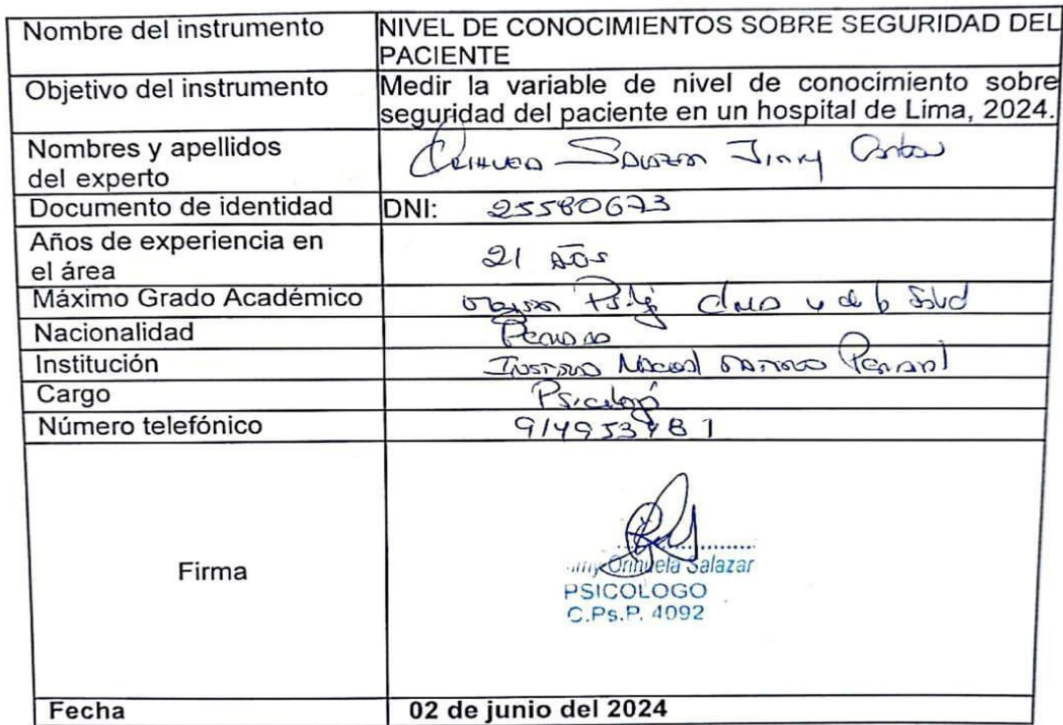 Nombre del instrumento
NIVEL DE CONOCIMIENTOS SOBRE SEGURIDAD DEL
PACIENTE
Objetivo del instrumento
Medir la variable de nivel de conocimiento sobre
seguridad del paciente en un hospital de Lima, 2024.
Nombres y apellidos
del experto
Orihuela Salazar Jimmy Carlos
Documento de identidad
DNI: 25580673
Años de experiencia en
el área
21 años
Máximo Grado Académico
y de la Salud
Nacionalidad
Peruano
Institución
Instituto Nacional Materno Perinatal
Cargo
Psicólogo
Número telefónico
914953481
Firma
Orihuela Salazar
PSICOLOGO
C.Ps.P. 4092
Fecha
02 de junio del 2024